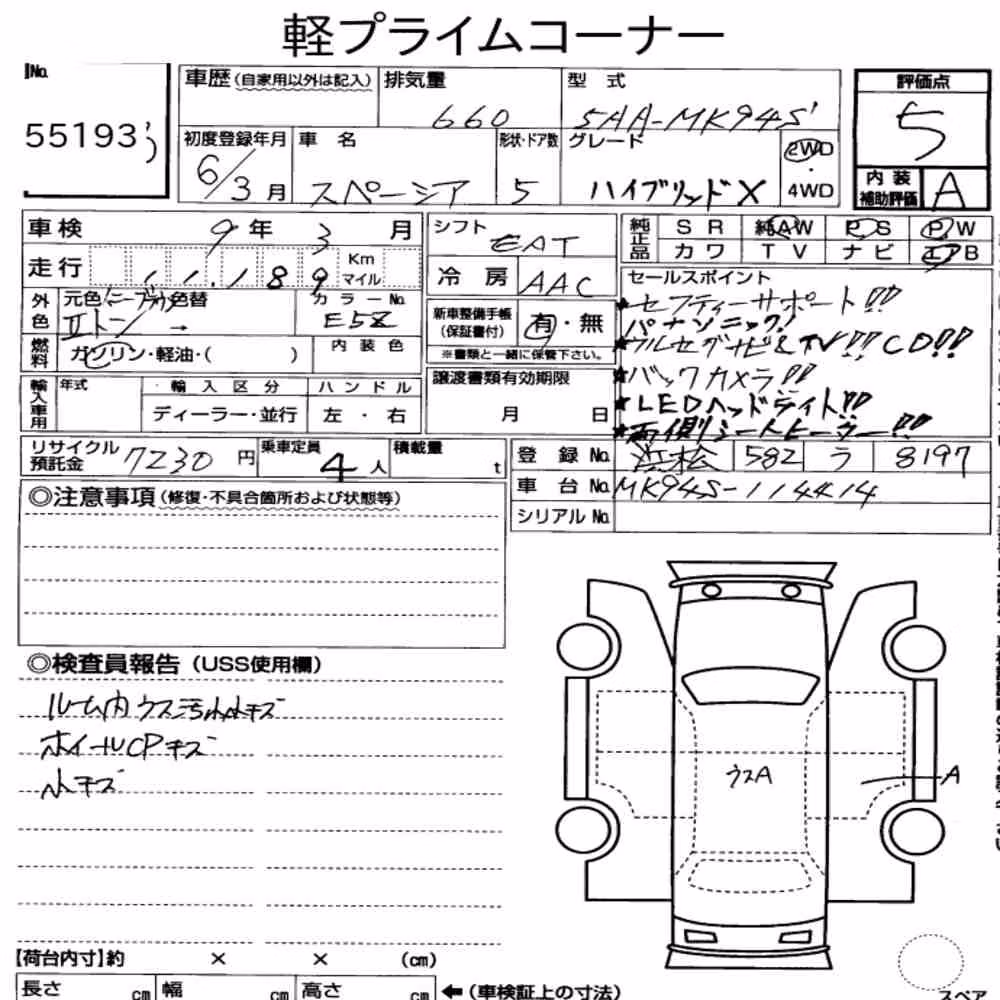 軽プライムコーナー
No.
55193
車歴（自家用以外は記入）
排気量
660
型 式
5AA-MK94S
評価点
5
初度登録年月
6/3月
車 名
スペーシア
形状・ドア数
5
グレード
ハイブリッドX
2WD
・
4WD
内装
補助評価
A
車検
9年 3月
走行
1,189
Km
マイル
外色
元色
色替
IIトン →
カラーNo.
E5Z
燃料
ガソリン・軽油・( )
内装色
輸入車用
年式
輸入区分
ディーラー・並行
ハンドル
左 ・ 右
シフト
EAT
冷房
AAC
新車整備手帳
（保証書付）
有・無
※書類と一緒に保管下さい。
譲渡書類有効期限
月 日
純正品
SR 純AW PS PW
カワ TV ナビ エアB
セールスポイント
★セフティーサポート!!
パナソニック!
★フルセグナビ&TV!! CD!!
★バックカメラ!!
★LEDヘッドライト!!
★両側シートヒーター!!
リサイクル
預託金
7230円
乗車定員
4人
積載量
t
登録No.
浜松 582 ラ 8197
車台No.
MK94S-114414
シリアルNo.
◎注意事項（修復・不具合箇所および状態等）
◎検査員報告（USS使用欄）
ルーム内 ウス汚れ小キズ
ホイールCPキズ
小キズ
ウスA
A
【荷台内寸】約 × × (cm)
長さ cm 幅 cm 高さ cm ←（車検証上の寸法）
スペア